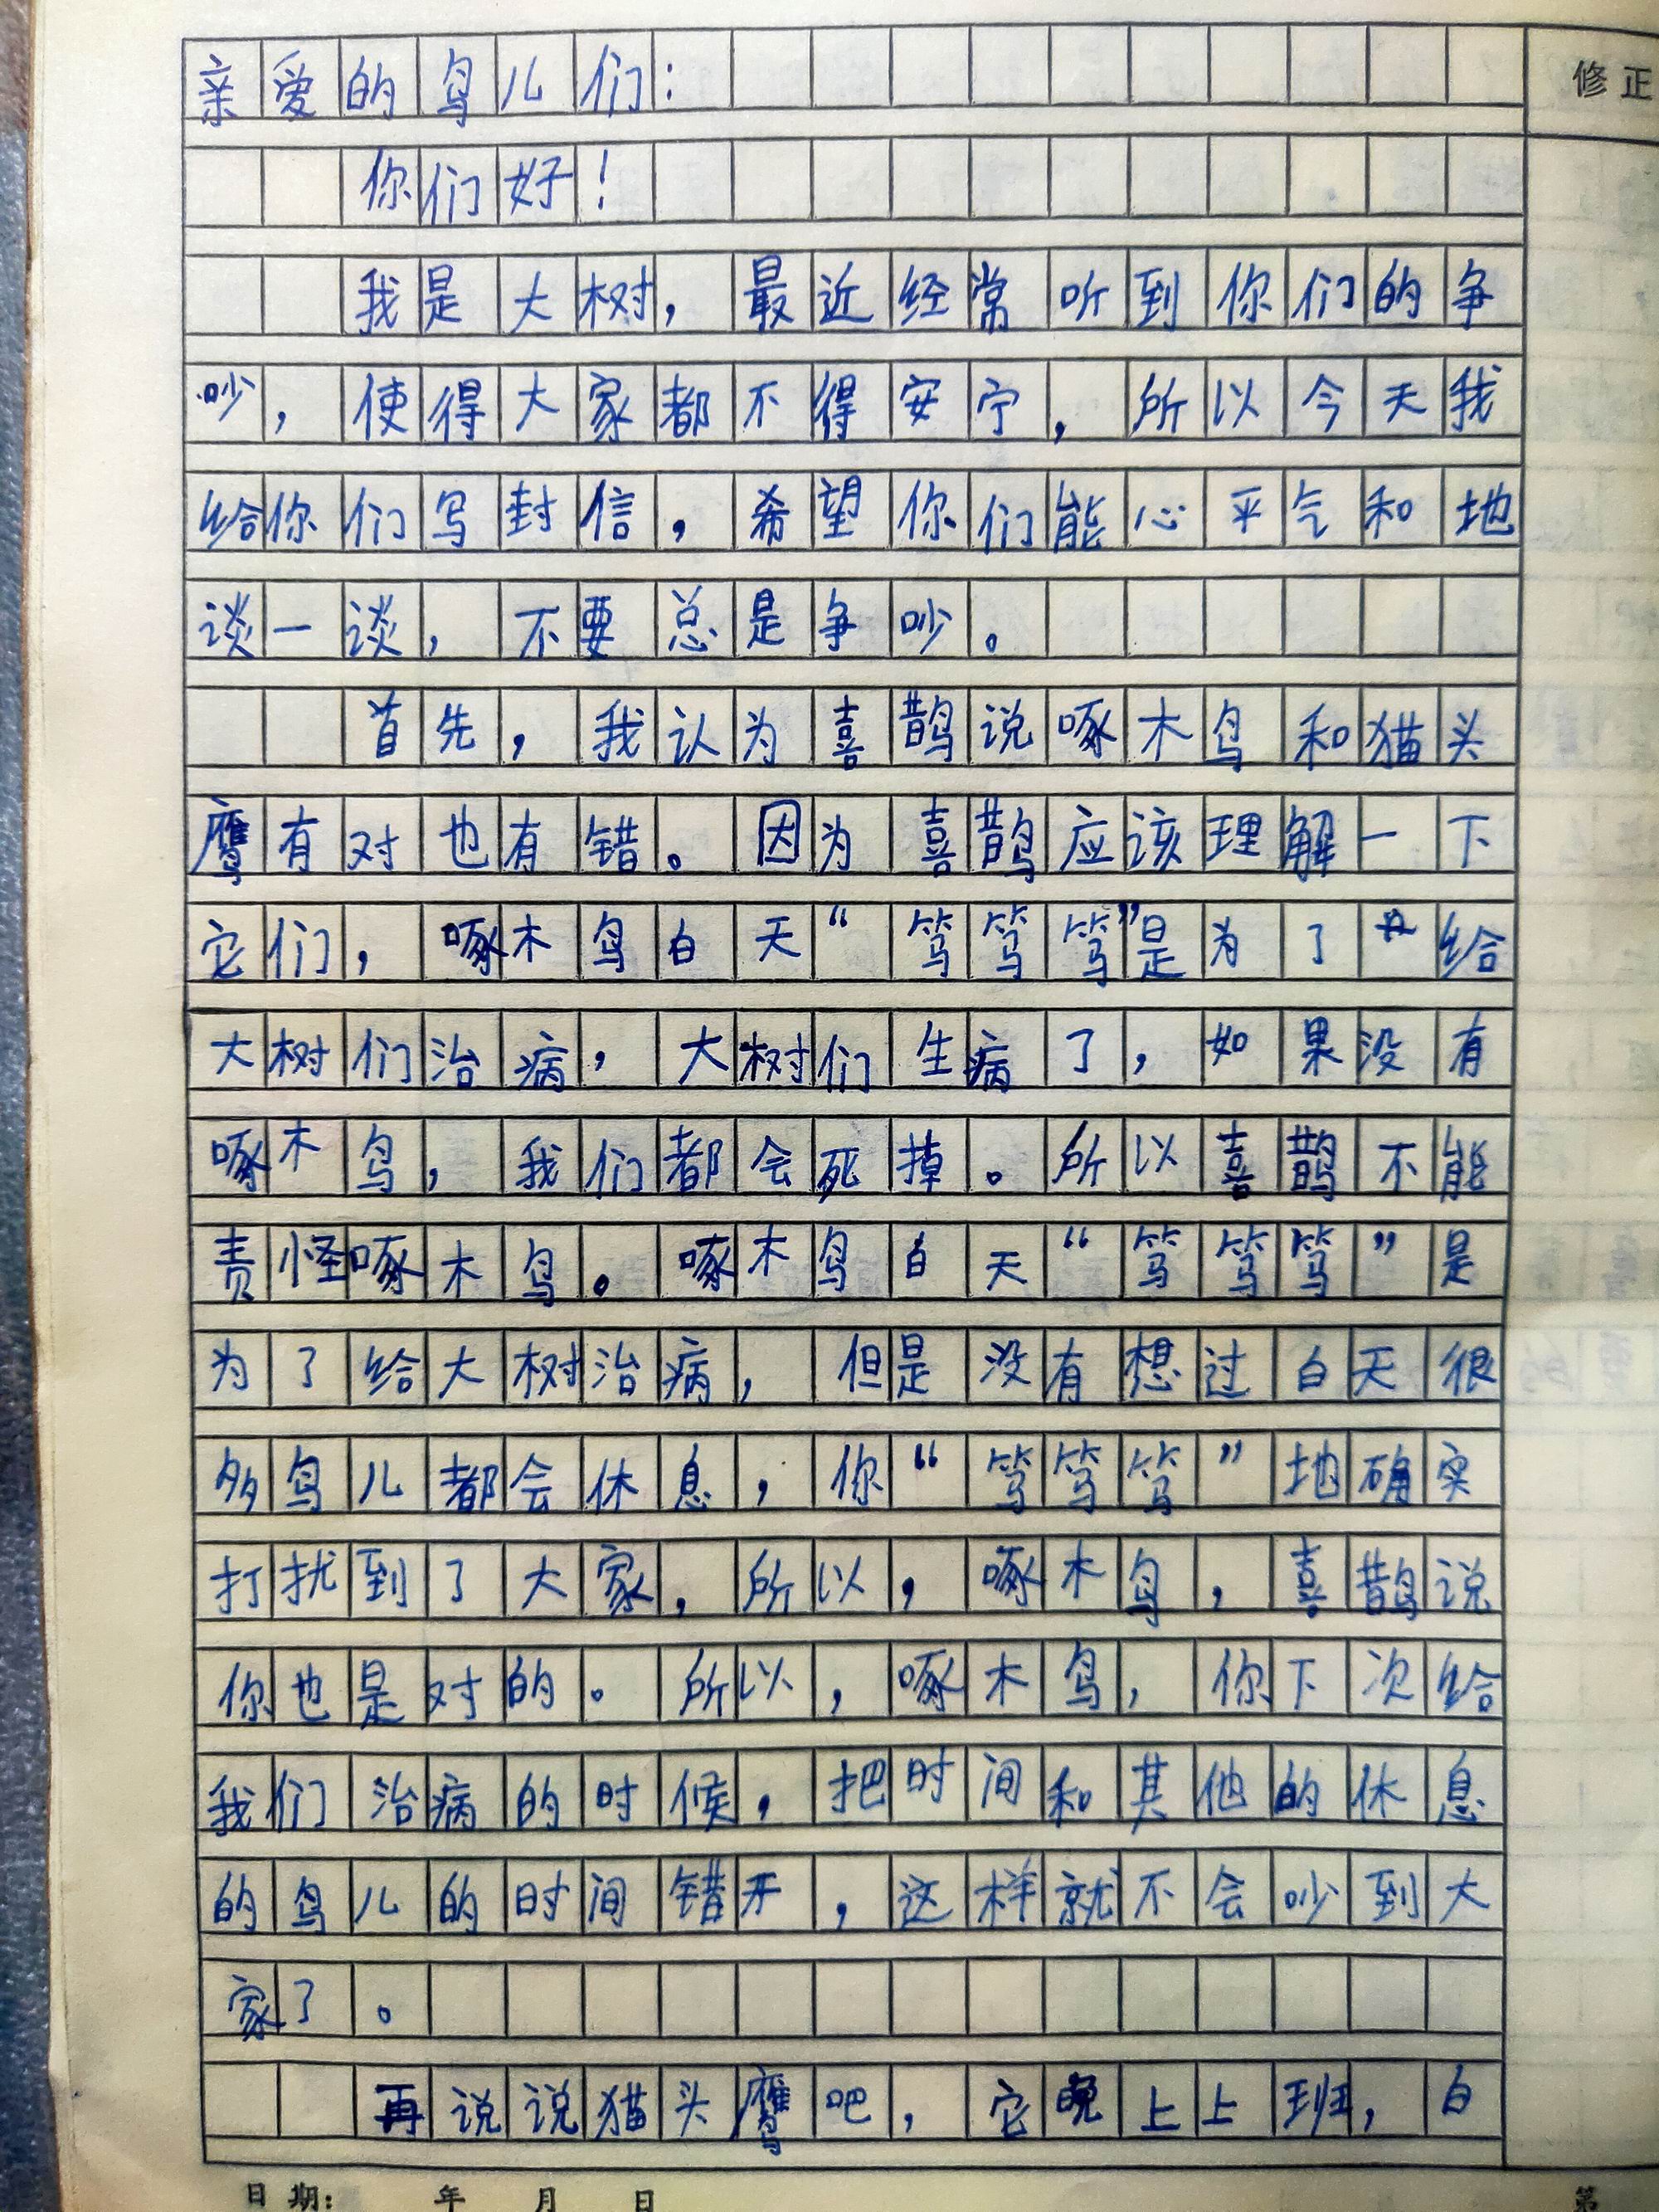 亲爱的鸟儿们：
修正
你们好！
我是大树，最近经常听到你们的争
吵，使得大家都不得安宁，所以今天我
给你们写封信，希望你们能心平气和地
谈一谈，不要总是争吵。
首先，我认为喜鹊说啄木鸟和猫头
鹰有对也有错。因为喜鹊应该理解一下
它们，啄木鸟白天“笃笃笃”是为了给
大树们治病，大树们生病了，如果没有
啄木鸟，我们都会死掉。所以喜鹊不能
责怪啄木鸟。啄木鸟白天“笃笃笃”是
为了给大树治病，但是没有想过白天很
多鸟儿都会休息，你“笃笃笃”地确实
打扰到了大家，所以，啄木鸟，喜鹊说
你也是对的。所以，啄木鸟，你下次给
我们治病的时候，把时间和其他的休息
的鸟儿的时间错开，这样就不会吵到大
家了。
再说说猫头鹰吧，它晚上上班，白
日期： 年 月 日
第